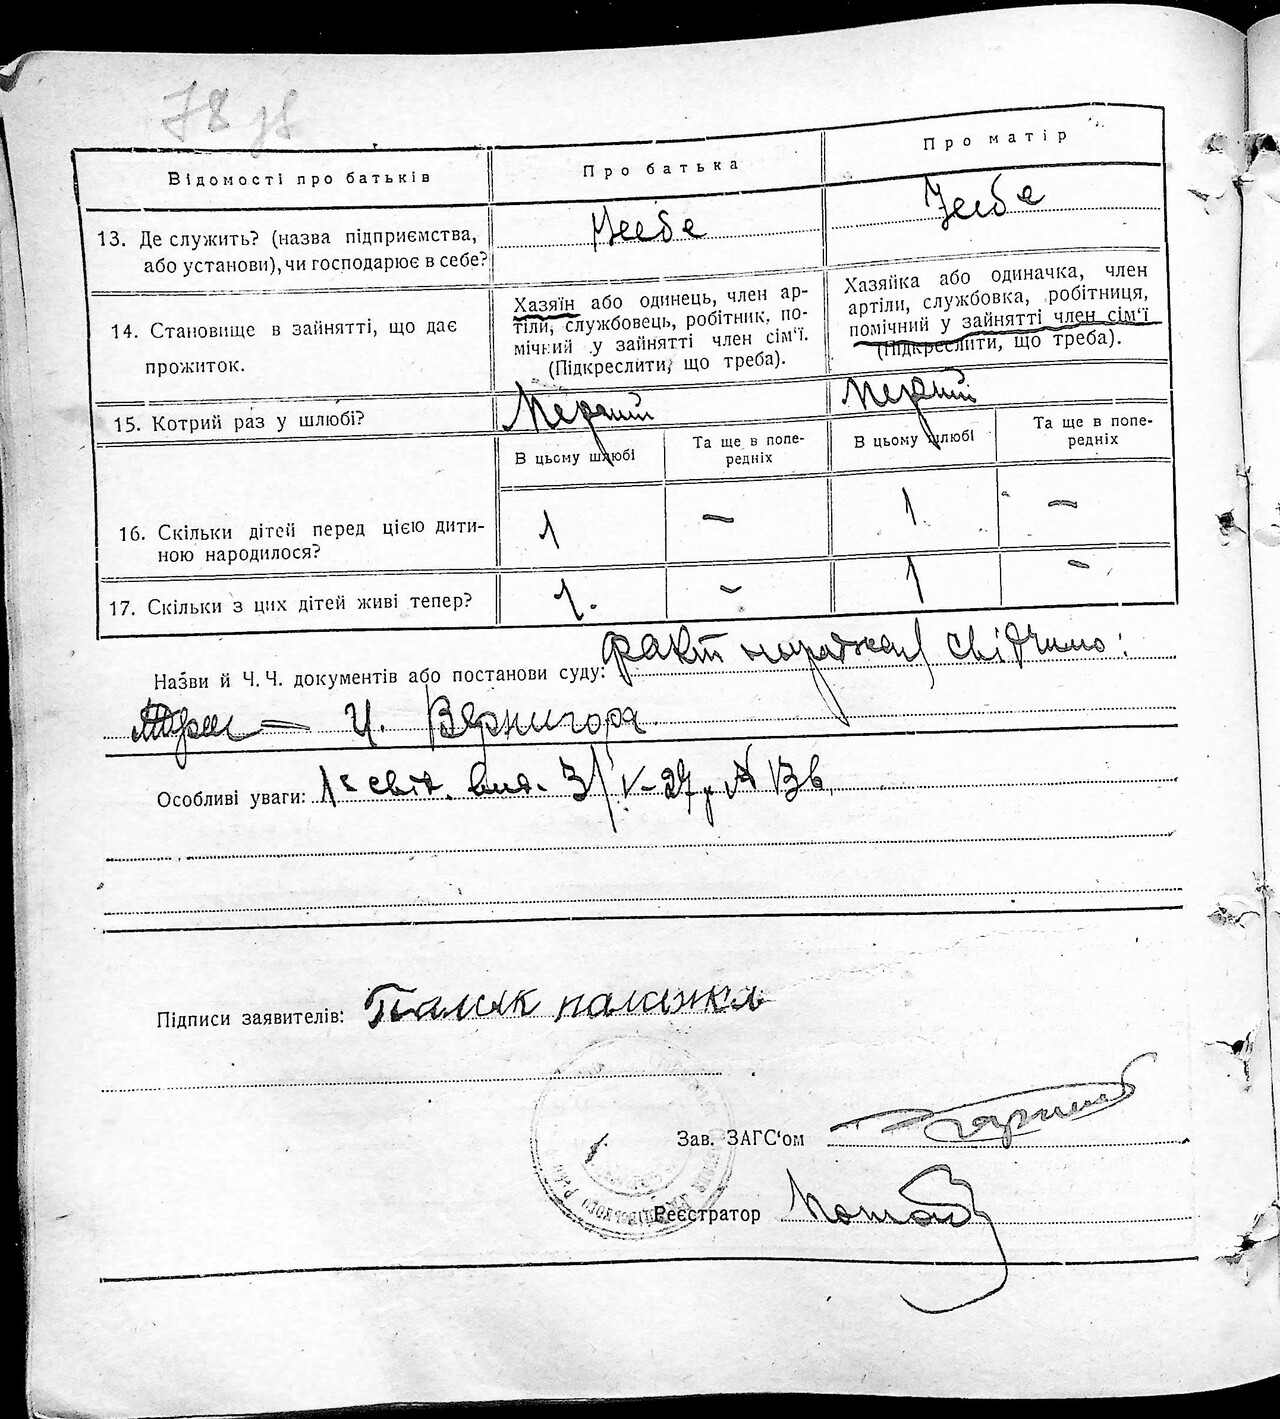 78 зв
Відомості про батьків
Про батька
Про матір
13. Де служить? (назва підприємства,
або установи), чи господарює в себе?
У себе
У себе
14. Становище в зайнятті, що дає
прожиток.
Хазяїн або одинець, член ар-
тілі, службовець, робітник, по-
мічний у зайнятті член сім'ї.
(Підкреслити, що треба).
Хазяйка або одиначка, член
артілі, службовка, робітниця,
помічний у зайнятті член сім'ї
(Підкреслити, що треба).
15. Котрий раз у шлюбі?
Перший
Перший
В цьому шлюбі
Та ще в попе-
редніх
В цьому шлюбі
Та ще в попе-
редніх
16. Скільки дітей перед цією дити-
ною народилося?
1 – 1 –
17. Скільки з цих дітей живі тепер?
1. – 1 –
Назви й Ч. Ч. документів або постанови суду: факт народження свідчимо:
Вернигора
Особливі уваги: свід. вид. 3/V-27р
Підписи заявителів: Паляк паланжа
Зав. ЗАГС'ом
Реєстратор